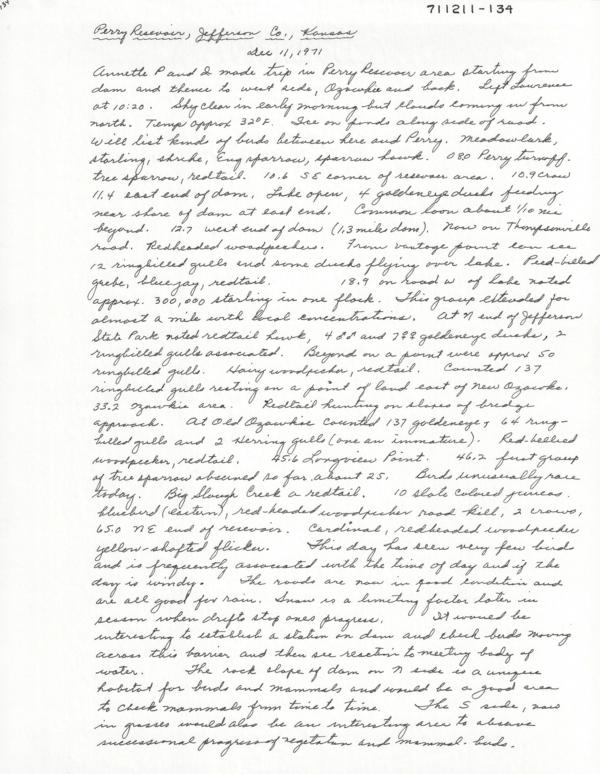 711211-134
Perry Resevoir, Jefferson Co., Kansas
Dec 11, 1971
Annette P and I made trip in Perry Resevoir area starting from
dam and thence to west side, Ozawkie and back. Left Lawrence
at 10:20. Sky clear in early morning but clouds coming in from
north. Temp approx 32°F. Ice on ponds along side of road.
Will list kind of birds between here and Perry. Meadowlark,
starling, shrike, Eng sparrow, sparrow hawk. 080 Perry turnoff.
tree sparrow, redtail. 10.6 SE corner of resevoir area. 10.9 crow
11.4 east end of dam, Lake open, 4 goldeneye ducks feeding
near shore of dam at east end. Common loon about 1/10 mi
beyond. 12.7 west end of dam (1.3 miles dam). Now on Thompsonville
road. Redheaded woodpeckers. From vantage point can see
12 ringbilled gulls and some ducks flying over lake. Pied-billed
grebe, bluejay, redtail. 18.9 on road W of lake noted
approx. 300,000 starling in one flock. This group extended for
almost a mile with local concentrations. At N end of Jefferson
State Park noted redtail hawk, 4 ♂♂ and 7 ♀♀ goldeneye ducks, 2
ringbilled gulls associated. Beyond on a point were approx 50
ringbilled gulls. Hairy woodpecker, redtail. Counted 137
ringbilled gulls resting on a point of land east of New Ozawkie.
33.2 Ozawkie area. Redtail hunting on slopes of bridge
approach. At Old Ozawkie counted 137 goldeneye, 64 ring-
billed gulls and 2 Herring gulls (one an immature). Red-bellied
woodpecker, redtail. 45.6 Longview Point. 46.2 first group
of tree sparrow observed so far. about 25. Birds unusually rare
today. Big Slough Creek a redtail. 10 slate colored juncos.
bluebird (eastern), red-headed woodpecker road kill, 2 crows,
65.0 NE end of resevoir. Cardinal, redheaded woodpecker
yellow-shafted flicker. This day has seen very few birds
and is frequently associated with the time of day and if the
day is windy. The roads are now in good condition and
are all good for rain. Snow is a limiting factor later in
season when drifts stop ones progress. It would be
interesting to establish a station on dam and check birds moving
across this barrier and then see reaction to meeting body of
water. The rock slope of dam on N side is a unique
habitat for birds and mammals and would be a good area
to check mammals from time to time. The S side, now
in grasses would also be an interesting area to observe
successional progress of vegetation and mammal-birds.